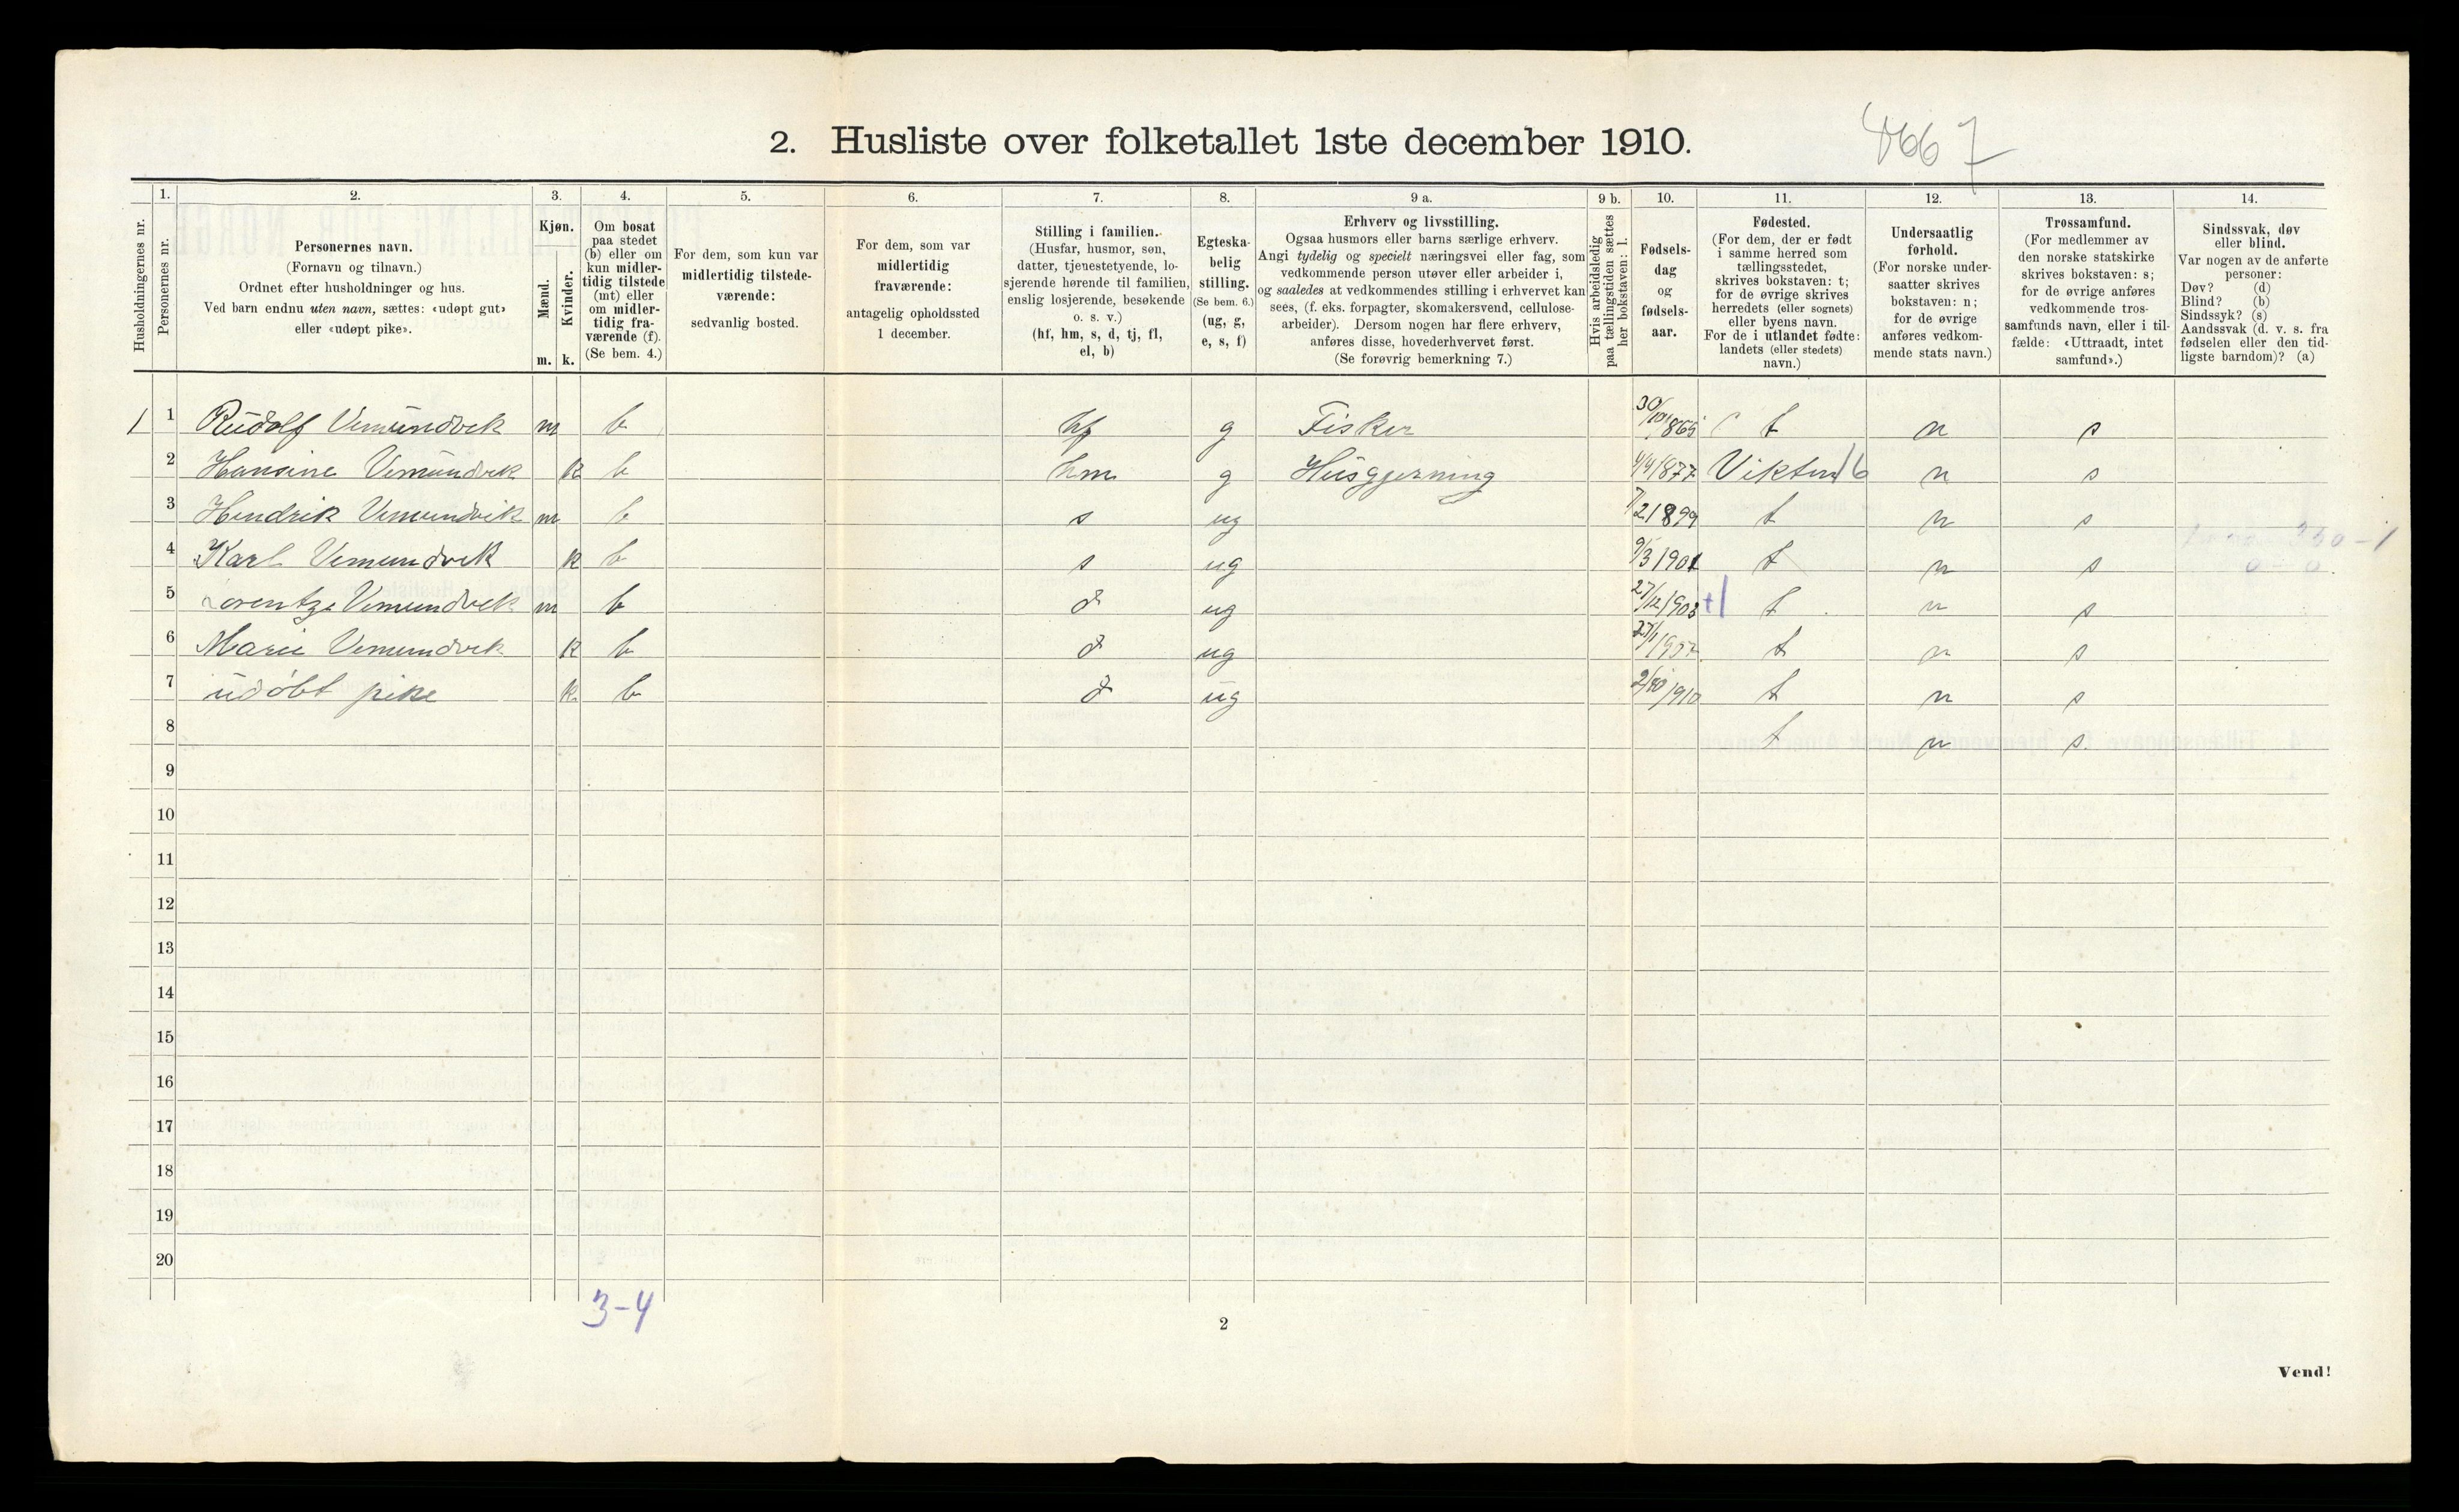 2. Husliste over folketallet 1ste december 1910.
4667
Husholdningernes nr.
1.
Personernes nr.
2.
Personernes navn.
(Fornavn og tilnavn.)
Ordnet efter husholdninger og hus.
Ved barn endnu uten navn, sættes: «udøpt gut»
eller «udøpt pike».
3.
Kjøn.
Mænd.
Kvinder.
m. k.
4.
Om bosat
paa stedet
(b) eller om
kun midler-
tidig tilstede
(mt) eller
om midler-
tidig fra-
værende (f).
(Se bem. 4.)
5.
For dem, som kun var
midlertidig tilstede-
værende:
sedvanlig bosted.
6.
For dem, som var
midlertidig
fraværende:
antagelig opholdssted
1 december.
7.
Stilling i familien.
(Husfar, husmor, søn,
datter, tjenestetyende, lo-
sjerende hørende til familien,
enslig losjerende, besøkende
o. s. v.)
(hf, hm, s, d, tj, fl,
el, b)
8.
Egteska-
belig
stilling.
(Se bem. 6.)
(ug, g,
e, s, f)
9 a.
Erhverv og livsstilling.
Ogsaa husmors eller barns særlige erhverv.
Angi tydelig og specielt næringsvei eller fag, som
vedkommende person utøver eller arbeider i,
og saaledes at vedkommendes stilling i erhvervet kan
sees, (f. eks. forpagter, skomakersvend, cellulose-
arbeider). Dersom nogen har flere erhverv,
anføres disse, hovederhvervet først.
(Se forøvrig bemerkning 7.)
9 b.
Hvis arbeidsledig
paa tællingstiden sættes
her bokstaven: l.
10.
Fødsels-
dag
og
fødsels-
aar.
11.
Fødested.
(For dem, der er født
i samme herred som
tællingsstedet,
skrives bokstaven: t;
for de øvrige skrives
herredets (eller sognets)
eller byens navn.
For de i utlandet fødte:
landets (eller stedets)
navn.)
12.
Undersaatlig
forhold.
(For norske under-
saatter skrives
bokstaven: n;
for de øvrige
anføres vedkom-
mende stats navn.)
13.
Trossamfund.
(For medlemmer av
den norske statskirke
skrives bokstaven: s;
for de øvrige anføres
vedkommende tros-
samfunds navn, eller i til-
fælde: «Uttraadt, intet
samfund».)
14.
Sindssvak, døv
eller blind.
Var nogen av de anførte
personer:
Døv? (d)
Blind? (b)
Sindssyk? (s)
Aandssvak (d. v. s. fra
fødselen eller den tid-
ligste barndom)? (a)
1 1 Rudolf Vemundvik m b hf g Fisker 30/10 1865 t n s
2 Hansine Vemundvik k b hm g Husgjerning 4/4 1877 n s
3 Hendrik Vemundvik m b s ug 7/2 1899 t n s
4 Karl Vemundvik k b s ug 9/3 1901 t n s
5 Lorentze Vemundvik m b d ug 27/12 1903 t n s
6 Marie Vemundvik k b d ug 1907 t n s
7 udøbt pike k b d ug 2/10 1910 t n s
8 t n s
9
10
11
12
13
14
15
16
17
18
19
20
3-4
2
Vend!